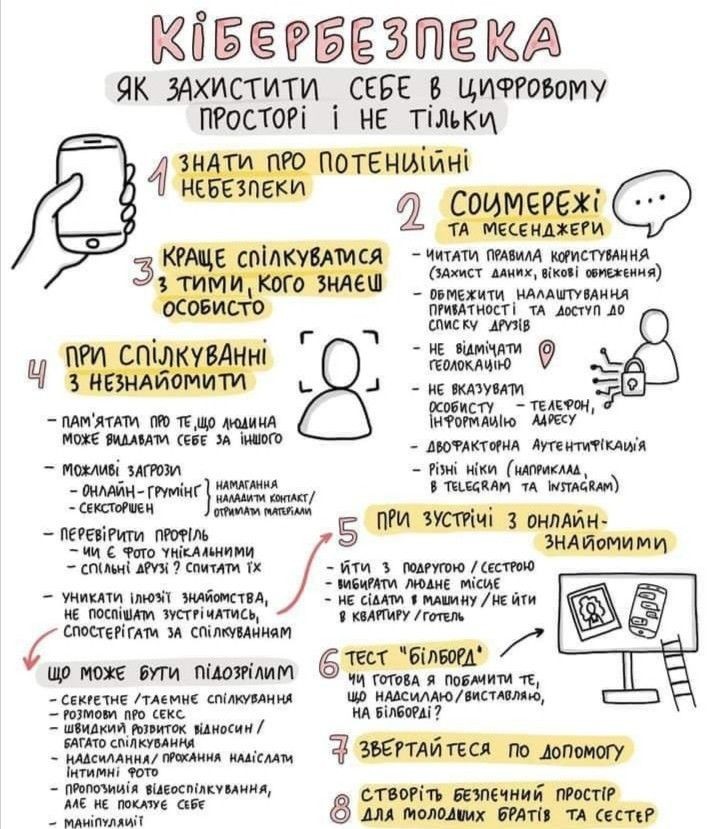 КІБЕРБЕЗПЕКА
ЯК ЗАХИСТИТИ СЕБЕ В ЦИФРОВОМУ
ПРОСТОРІ І НЕ ТІЛЬКИ
1 ЗНАТИ ПРО ПОТЕНЦІЙНІ
НЕБЕЗПЕКИ
2 СОЦМЕРЕЖІ
ТА МЕСЕНДЖЕРИ
- ЧИТАТИ ПРАВИЛА КОРИСТУВАННЯ
(ЗАХИСТ ДАНИХ, ВІКОВІ ОБМЕЖЕННЯ)
- ОБМЕЖИТИ НАЛАШТУВАННЯ
ПРИВАТНОСТІ ТА ДОСТУП ДО
СПИСКУ ДРУЗІВ
- НЕ ВІДМІЧАТИ
ГЕОЛОКАЦІЮ
- НЕ ВКАЗУВАТИ
ОСОБИСТУ - ТЕЛЕФОН,
ІНФОРМАЦІЮ АДРЕСУ
- ДВОФАКТОРНА АУТЕНТИФІКАЦІЯ
- РІЗНІ НІКИ (НАПРИКЛАД,
В TELEGRAM ТА INSTAGRAM)
3 КРАЩЕ СПІЛКУВАТИСЯ
З ТИМИ, КОГО ЗНАЄШ
ОСОБИСТО
4 ПРИ СПІЛКУВАННІ
З НЕЗНАЙОМИТИ
- ПАМ'ЯТАТИ ПРО ТЕ, ЩО ЛЮДИНА
МОЖЕ ВИДАВАТИ СЕБЕ ЗА ІНШОГО
- МОЖЛИВІ ЗАГРОЗИ
- ОНЛАЙН-ГРУМІНГ
- СЕКСТОРШЕН
НАМАГАННЯ
НАЛАДИТИ КОНТАКТ/
ОТРИМАТИ МАТЕРІАЛИ
- ПЕРЕВІРИТИ ПРОФІЛЬ
- ЧИ Є ФОТО УНІКАЛЬНИМИ
- СПІЛЬНІ ДРУЗІ? СПИТАТИ ЇХ
- УНИКАТИ ІЛЮЗІЇ ЗНАЙОМСТВА,
НЕ ПОСПІШАТИ ЗУСТРІЧАТИСЬ,
СПОСТЕРІГАТИ ЗА СПІЛКУВАННЯМ
ЩО МОЖЕ БУТИ ПІДОЗРІЛИМ
- СЕКРЕТНЕ / ТАЄМНЕ СПІЛКУВАННЯ
- РОЗМОВИ ПРО СЕКС
- ШВИДКИЙ РОЗВИТОК ВІДНОСИН /
БАГАТО СПІЛКУВАННЯ
- НАДСИЛАННЯ / ПРОХАННЯ НАДІСЛАТИ
ІНТИМНІ ФОТО
- ПРОПОЗИЦІЯ ВІДЕОСПІЛКУВАННЯ,
АЛЕ НЕ ПОКАЗУЄ СЕБЕ
- МАНІПУЛЯЦІЇ
5 ПРИ ЗУСТРІЧІ З ОНЛАЙН-
ЗНАЙОМИМИ
- ЙТИ З ПОДРУГОЮ / СЕСТРОЮ
- ВИБИРАТИ ЛЮДНЕ МІСЦЕ
- НЕ СІДАТИ В МАШИНУ / НЕ ЙТИ
В КВАРТИРУ / ГОТЕЛЬ
6 ТЕСТ "БІЛБОРД"
ЧИ ГОТОВА Я ПОБАЧИТИ ТЕ,
ЩО НАДСИЛАЮ / ВИСТАВЛЯЮ,
НА БІЛБОРДІ?
7 ЗВЕРТАЙТЕСЯ ПО ДОПОМОГУ
8 СТВОРІТЬ БЕЗПЕЧНИЙ ПРОСТІР
ДЛЯ МОЛОДШИХ БРАТІВ ТА СЕСТЕР